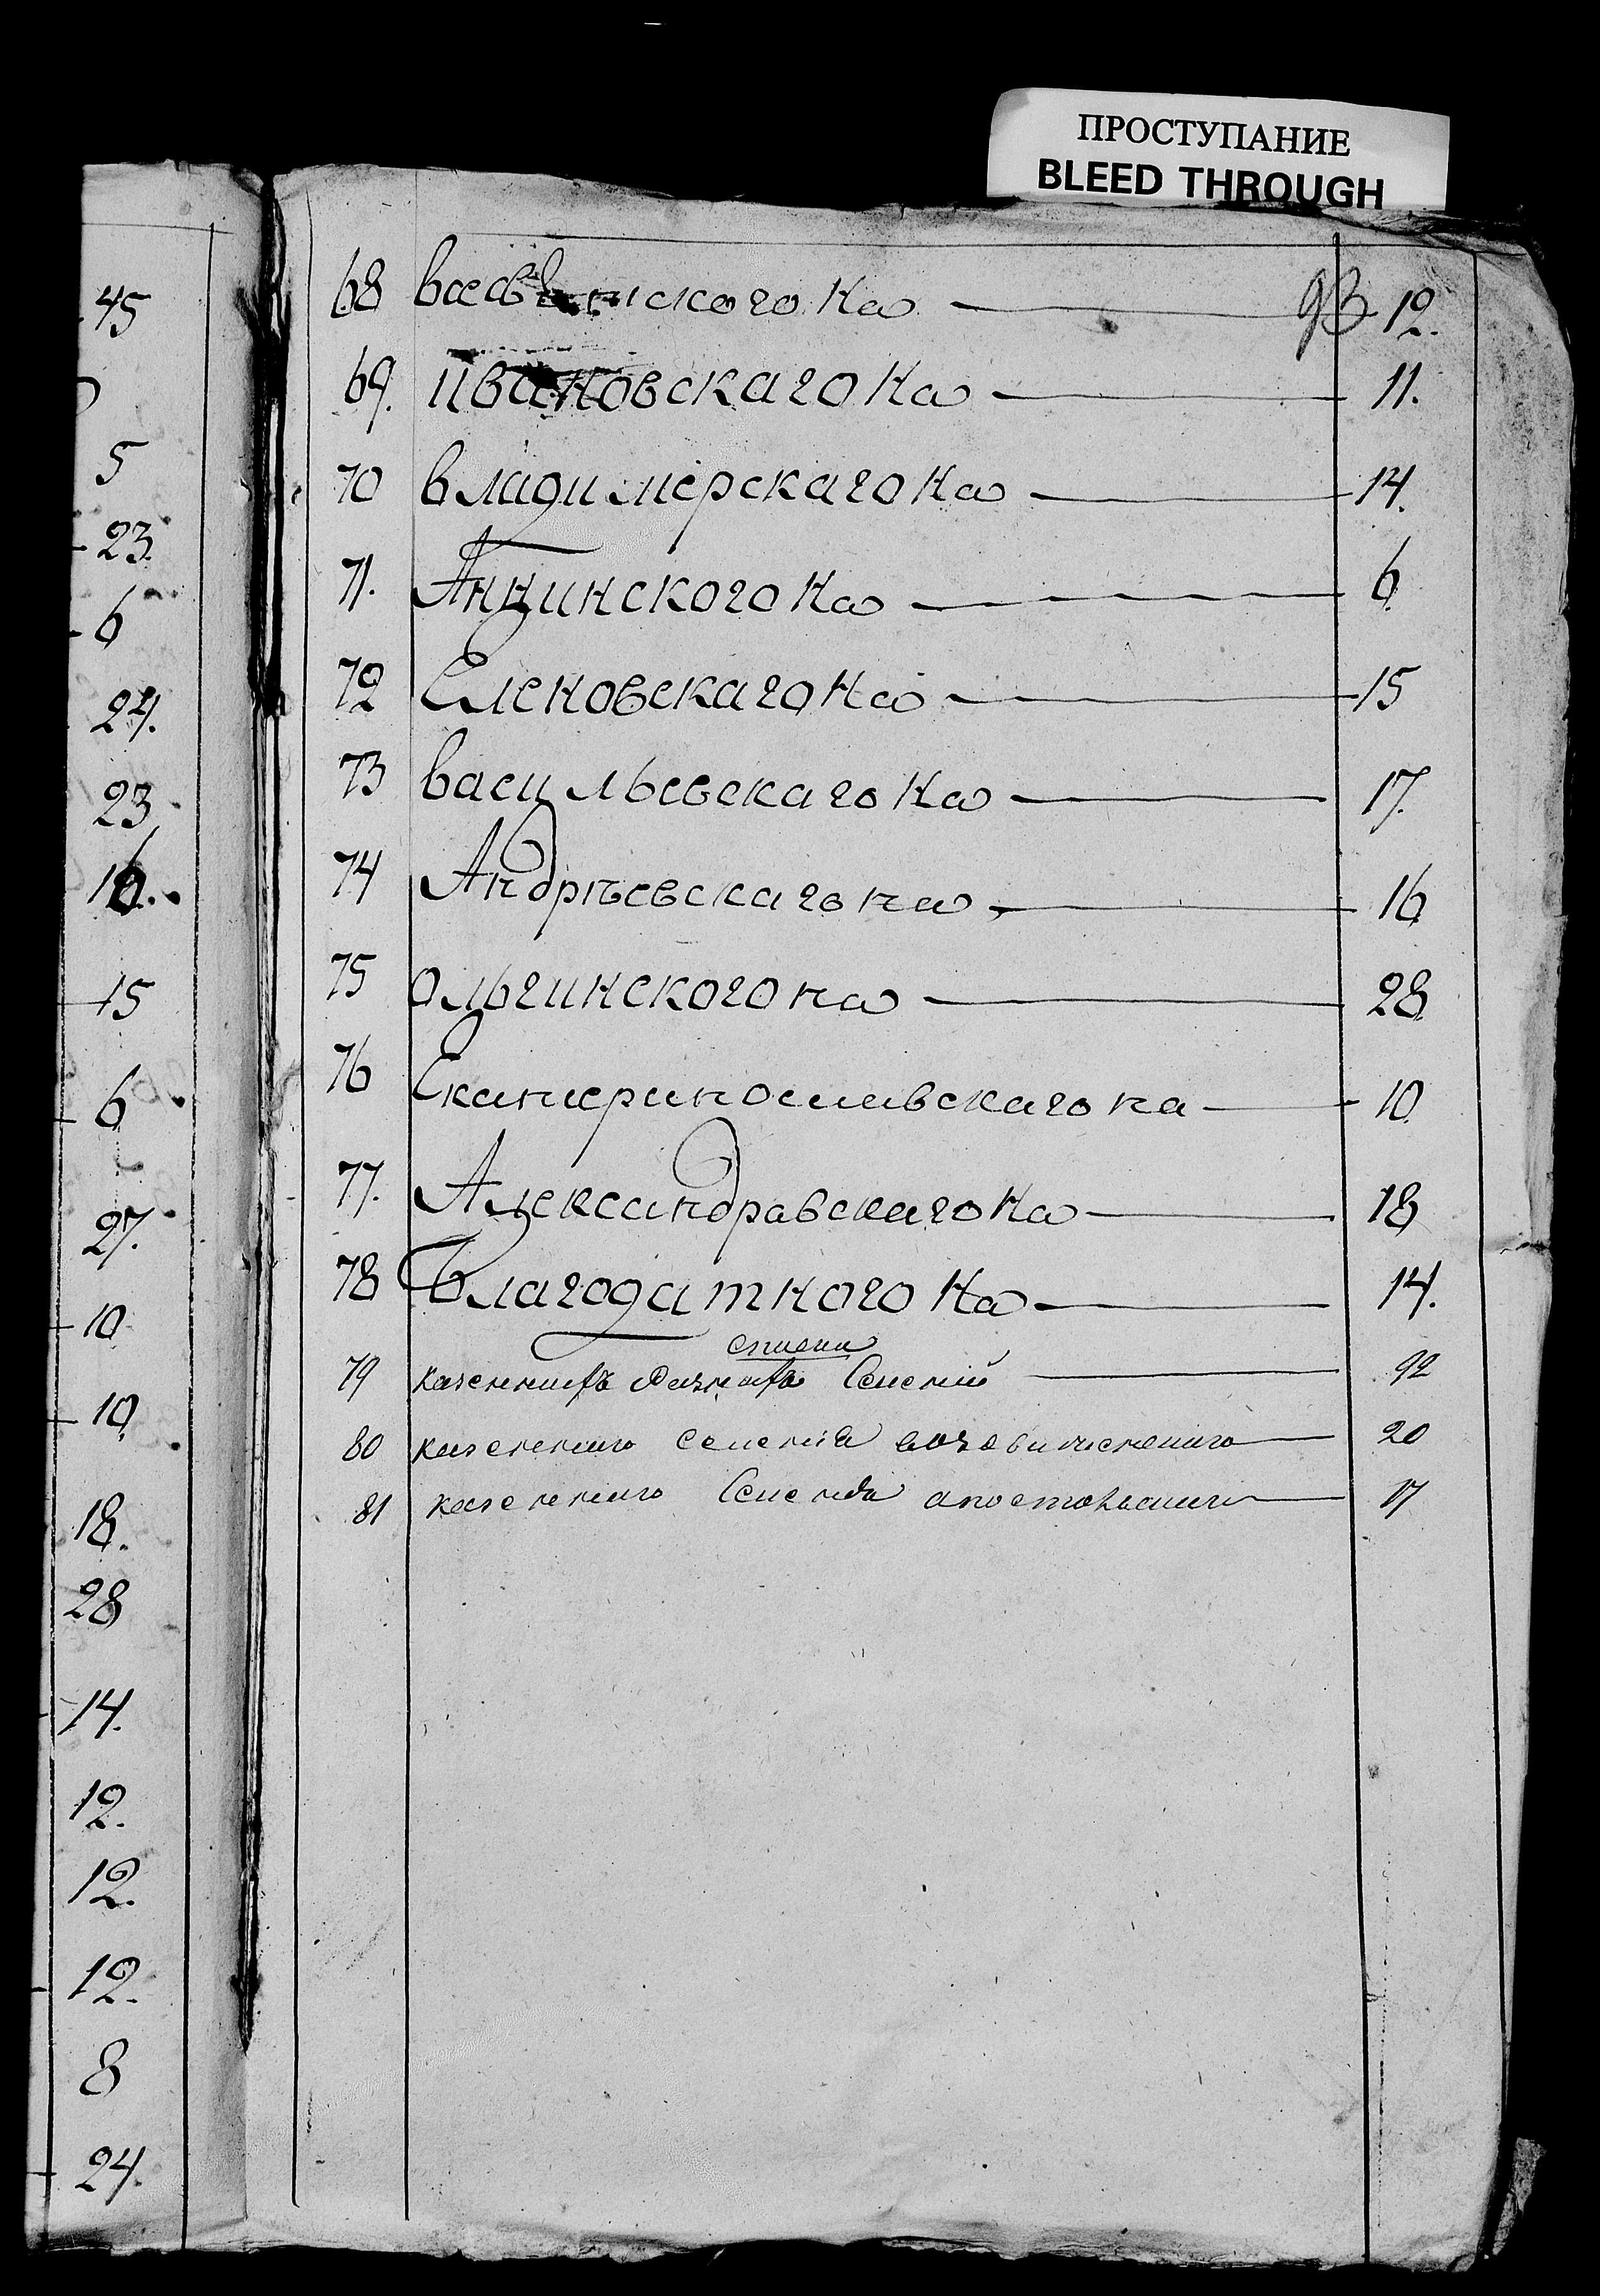 ПРОСТУПАНИЕ
BLEED THROUGH
45
5
23.
6
24.
23
16.
15
6
27.
10
10
18.
28
14.
12.
12.
12.
8
24.
93
68 на 12.
69. ивановскаго на 11.
70 владимерскаго на 14.
71. Аннинского на 6
72 Еленовскаго на 15
73 васильевскаго на 17.
74 Андрѣевскаго на 16
75 ольгинского на 28
76 Екатеринославскаго на 10
77. Александравскаго на 18
78 Благодатного на 14.
79 казенныхъ разныхъ Селений 92
80 казеннаго селения 20
81 казеннаго Селения 17